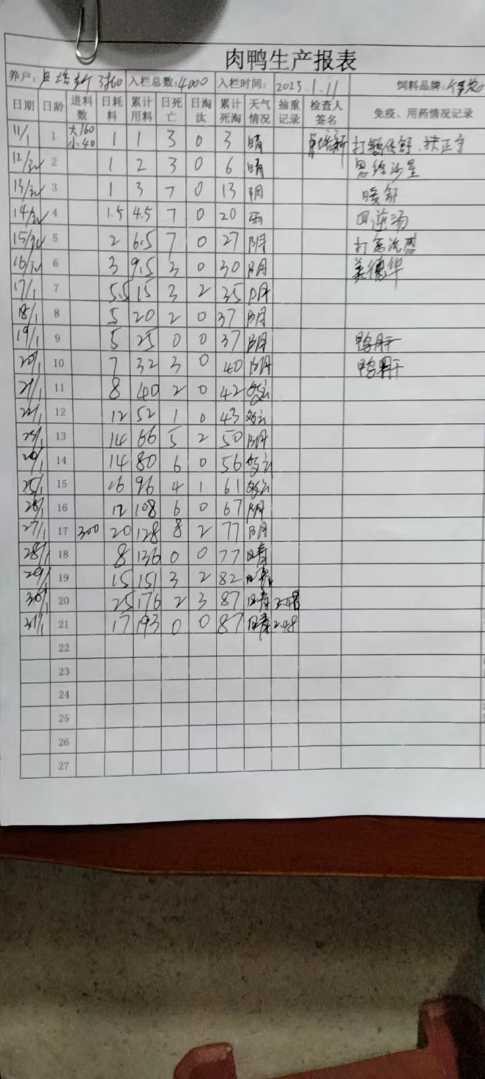 肉鸭生产报表
养户: 3360 入栏总数:4000 入栏时间: 2023.1.11 饲料品牌:
日期 日龄 进料数 日耗料 累计用料 日死亡 日淘汰 累计死淘 天气情况 抽重记录 检查人签名 免疫、用药情况记录
11/1 1 大160 小40 1 1 3 0 3 晴
12/1 2 1 2 3 0 6 晴
13/1 3 1 3 7 0 13 阴
14/1 4 1.5 4.5 7 0 20 四逆汤
15/1 5 2 6.5 7 0 27 阴
16/1 6 3 9.5 3 0 30 阴
17/1 7 5.5 15 3 2 35 阴
18/1 8 5 20 2 0 37 阴
19/1 9 5 25 0 0 37 阴 鸭肝
20/1 10 7 32 3 0 40 阴 鸭肝
21/1 11 8 40 2 0 42 多云
22/1 12 12 52 1 0 43 多云
13 14 66 5 2 50 阴
14 14 80 6 0 56 多云
25/1 15 16 96 4 1 61 多云
26/1 16 12 108 6 0 67 阴
27/1 17 300 20 128 8 2 77 阴
28/1 18 8 136 0 0 77 晴
29/1 19 15 151 3 2 82
30/1 20 25 176 2 3 87 晴
31/1 21 17 193 0 0 87 晴 2.48
22
23
24
25
26
27